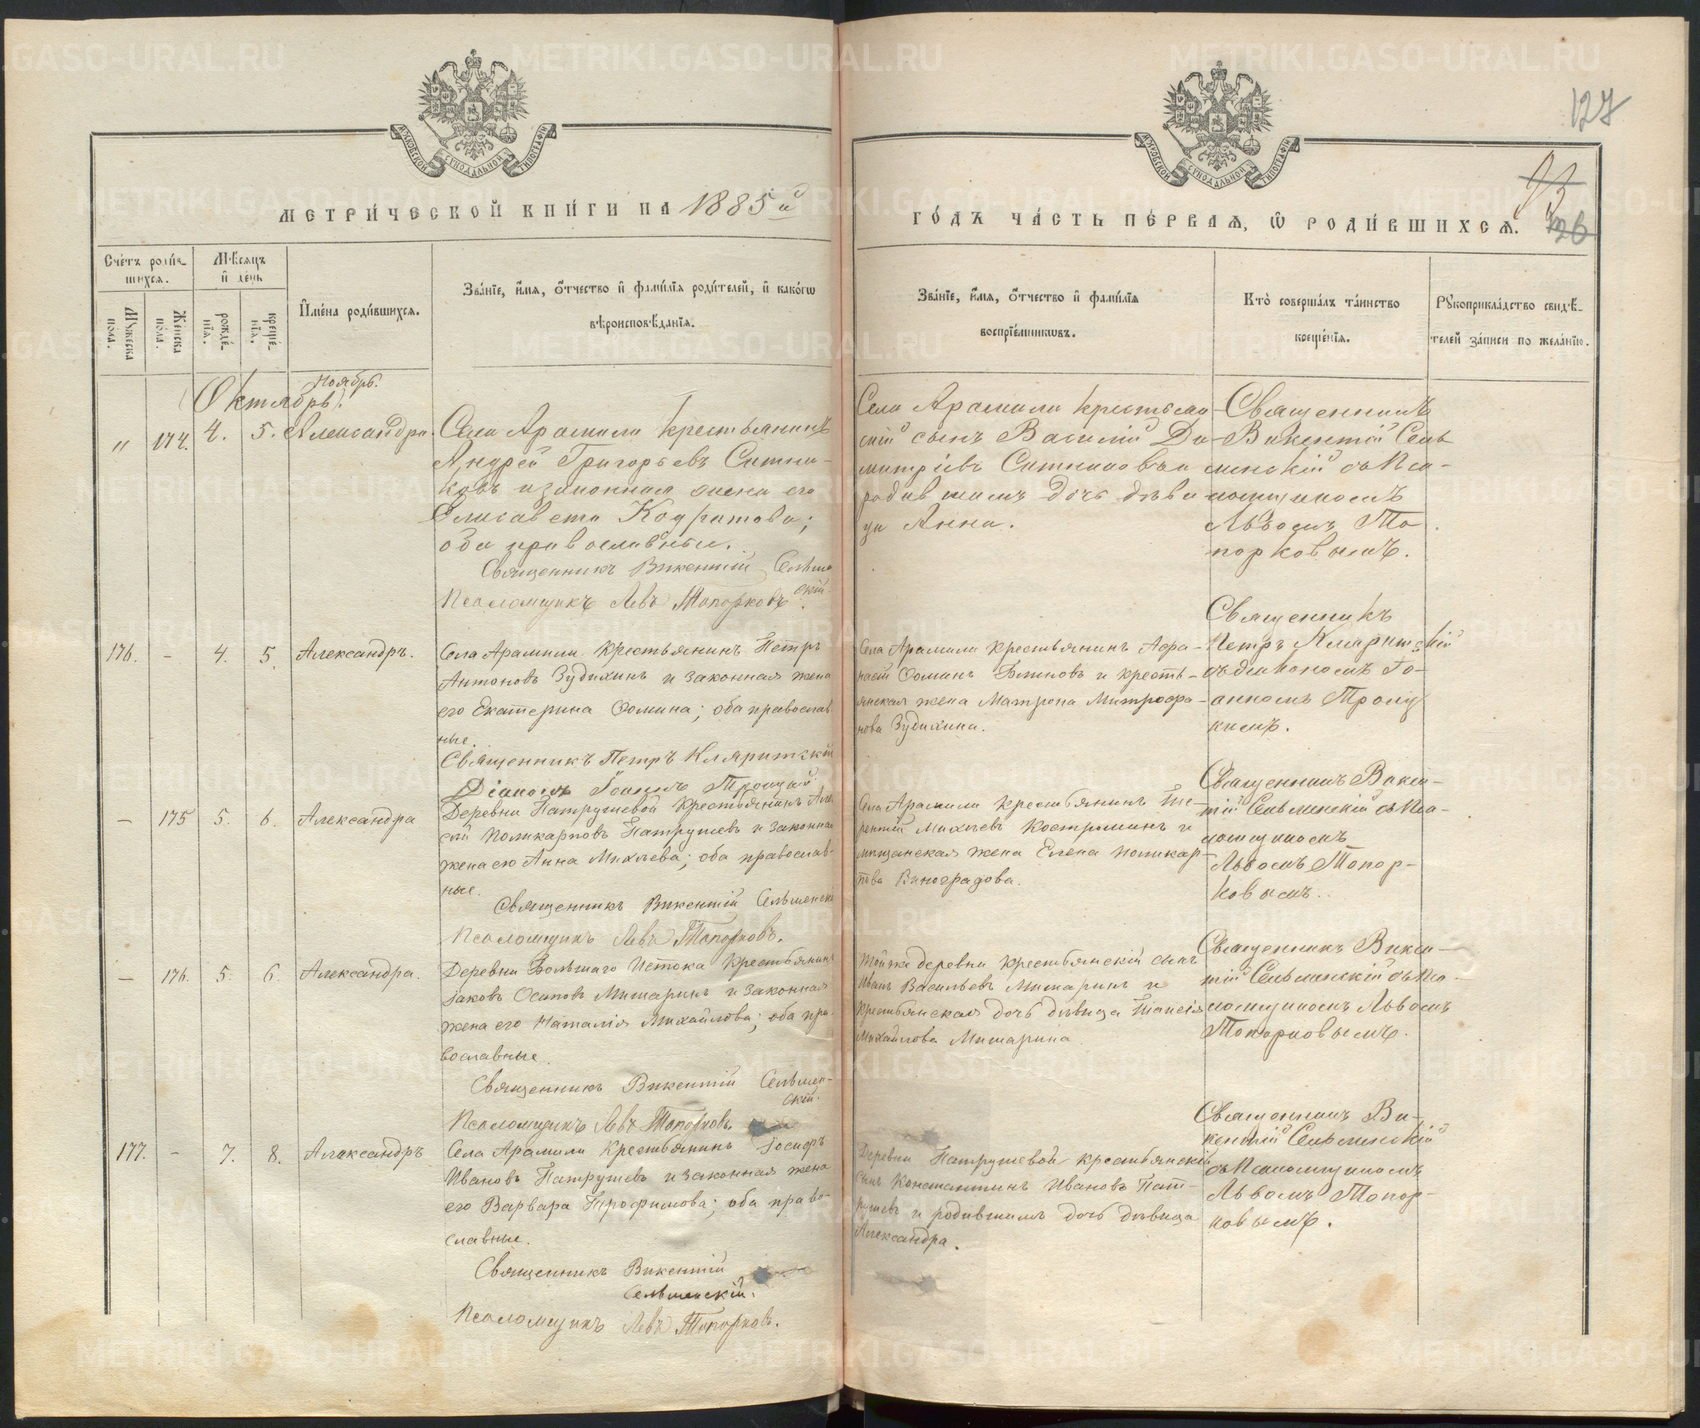 METRIKI.GASO-URAL.RU
127
93
126
МЕТРИ́ЧЕСКОЙ КНИ́ГИ НА 1885й
ГО́ДЪ ЧА́СТЬ ПЕ́РВАѦ, Ѡ҆ РОДИ́ВШИХСѦ.
Сче́тъ роди́вшихся.
Мѣ́сяцъ и҆ де́нь
И҆мена̀ роди́вшихся.
Зва́нїе, и҆́мя, ѻ҆́тчество и҆ фами́лїя роди́телей, и҆ како́гѡ
вѣроисповѣ́данїя.
Мꙋ́жеска по́ла.
Же́нска по́ла.
рожде́нїя.
креще́нїя.
Зва́нїе, и҆́мя, ѻ҆́тчество и҆ фами́лїя
воспрїе́мникѡвъ.
Кто̀ соверша́лъ та́инство
креще́нїя.
Рꙋкоприкла́дство свидѣ́-
телей за́писи по жела́нїю.
Ноябрь.
(Октябрь).
" 174. 4. 5. Александра
Села Арамили крестьянинъ
Андрей Григорьевъ Ситни-
ковъ и законная жена его
Елисавета Кодратова;
оба православные.
Священникъ Викентій Сельмен
скій.
Псаломщикъ Левъ Топорковъ
Села Арамили крестьян-
скій сынъ Василій Ди-
митріевъ Ситниковъ и
родившимъ дочь дѣви
ца Анна.
Священникъ
Викентій Сель
менскій съ Пса-
ломщикомъ
Львомъ То
порковымъ.
176. - 4. 5. Александръ.
Села Арамили крестьянинъ Петръ
Антоновъ Зудихинъ и законная жена
его Екатерина Ѳомина; оба православ
ные.
Священникъ Петръ Кляритскій
Діаконъ Іоаннъ Троицкій
Села Арамили крестьянинъ Аѳа-
насій Ѳоминъ Блиновъ и кресть-
янская жена Матрона Митрофа-
нова Зудихина.
Священникъ
Петръ Кляритскій
съ діакономъ Іо-
анномъ Троиц
кимъ.
- 175 5. 6. Александра
Деревни Патрушевой крестьянинъ Але
сій Поликарповъ Патрушевъ и законная
жена его Анна Михѣева; оба православ-
ные.
Священникъ Викентій Сельменскі
Псаломщикъ Левъ Топорковъ.
Села Арамили крестьянинъ Те-
рентій Михѣевъ Костроминъ и
мѣщанская жена Елена Поликар-
пова Виноградова.
Священникъ Викен-
тій Сельменскій съ Пса-
ломщикомъ
Львомъ Топор-
ковымъ.
- 176. 5. 6 Александра.
Деревни Большаго Истока крестьянинъ
Іаковъ Осиповъ Мишаринъ и законная
жена его Наталія Михайлова; оба пра
вославные.
Священникъ Викентій Сельмен-
скій.
Псаломщикъ Левъ Топорковъ
Тойже деревни крестьянскій сынъ
Иванъ Васильевъ Мишаринъ и
крестьянская дочь дѣвица Таисія
Михайлова Мишарина
Священникъ Викен-
тій Сельменскій съ Пса-
ломщикомъ Львомъ
Топорковымъ.
177. - 7. 8. Александръ
Села Арамили крестьянинъ Іосифъ
Ивановъ Патрушевъ и законная жена
его Варвара Трофимова; оба право-
славные.
Священникъ Викентій
Сельменскій.
Псаломщикъ Левъ Топорковъ.
Деревни Патрушевой крестьянскій
сынъ Константинъ Ивановъ Пат-
рушевъ и родившимъ дочь дѣвица
Александра.
Священникъ Ви-
кентій Сельменскій
съ Псаломщикомъ
Львомъ Топор-
ковымъ.